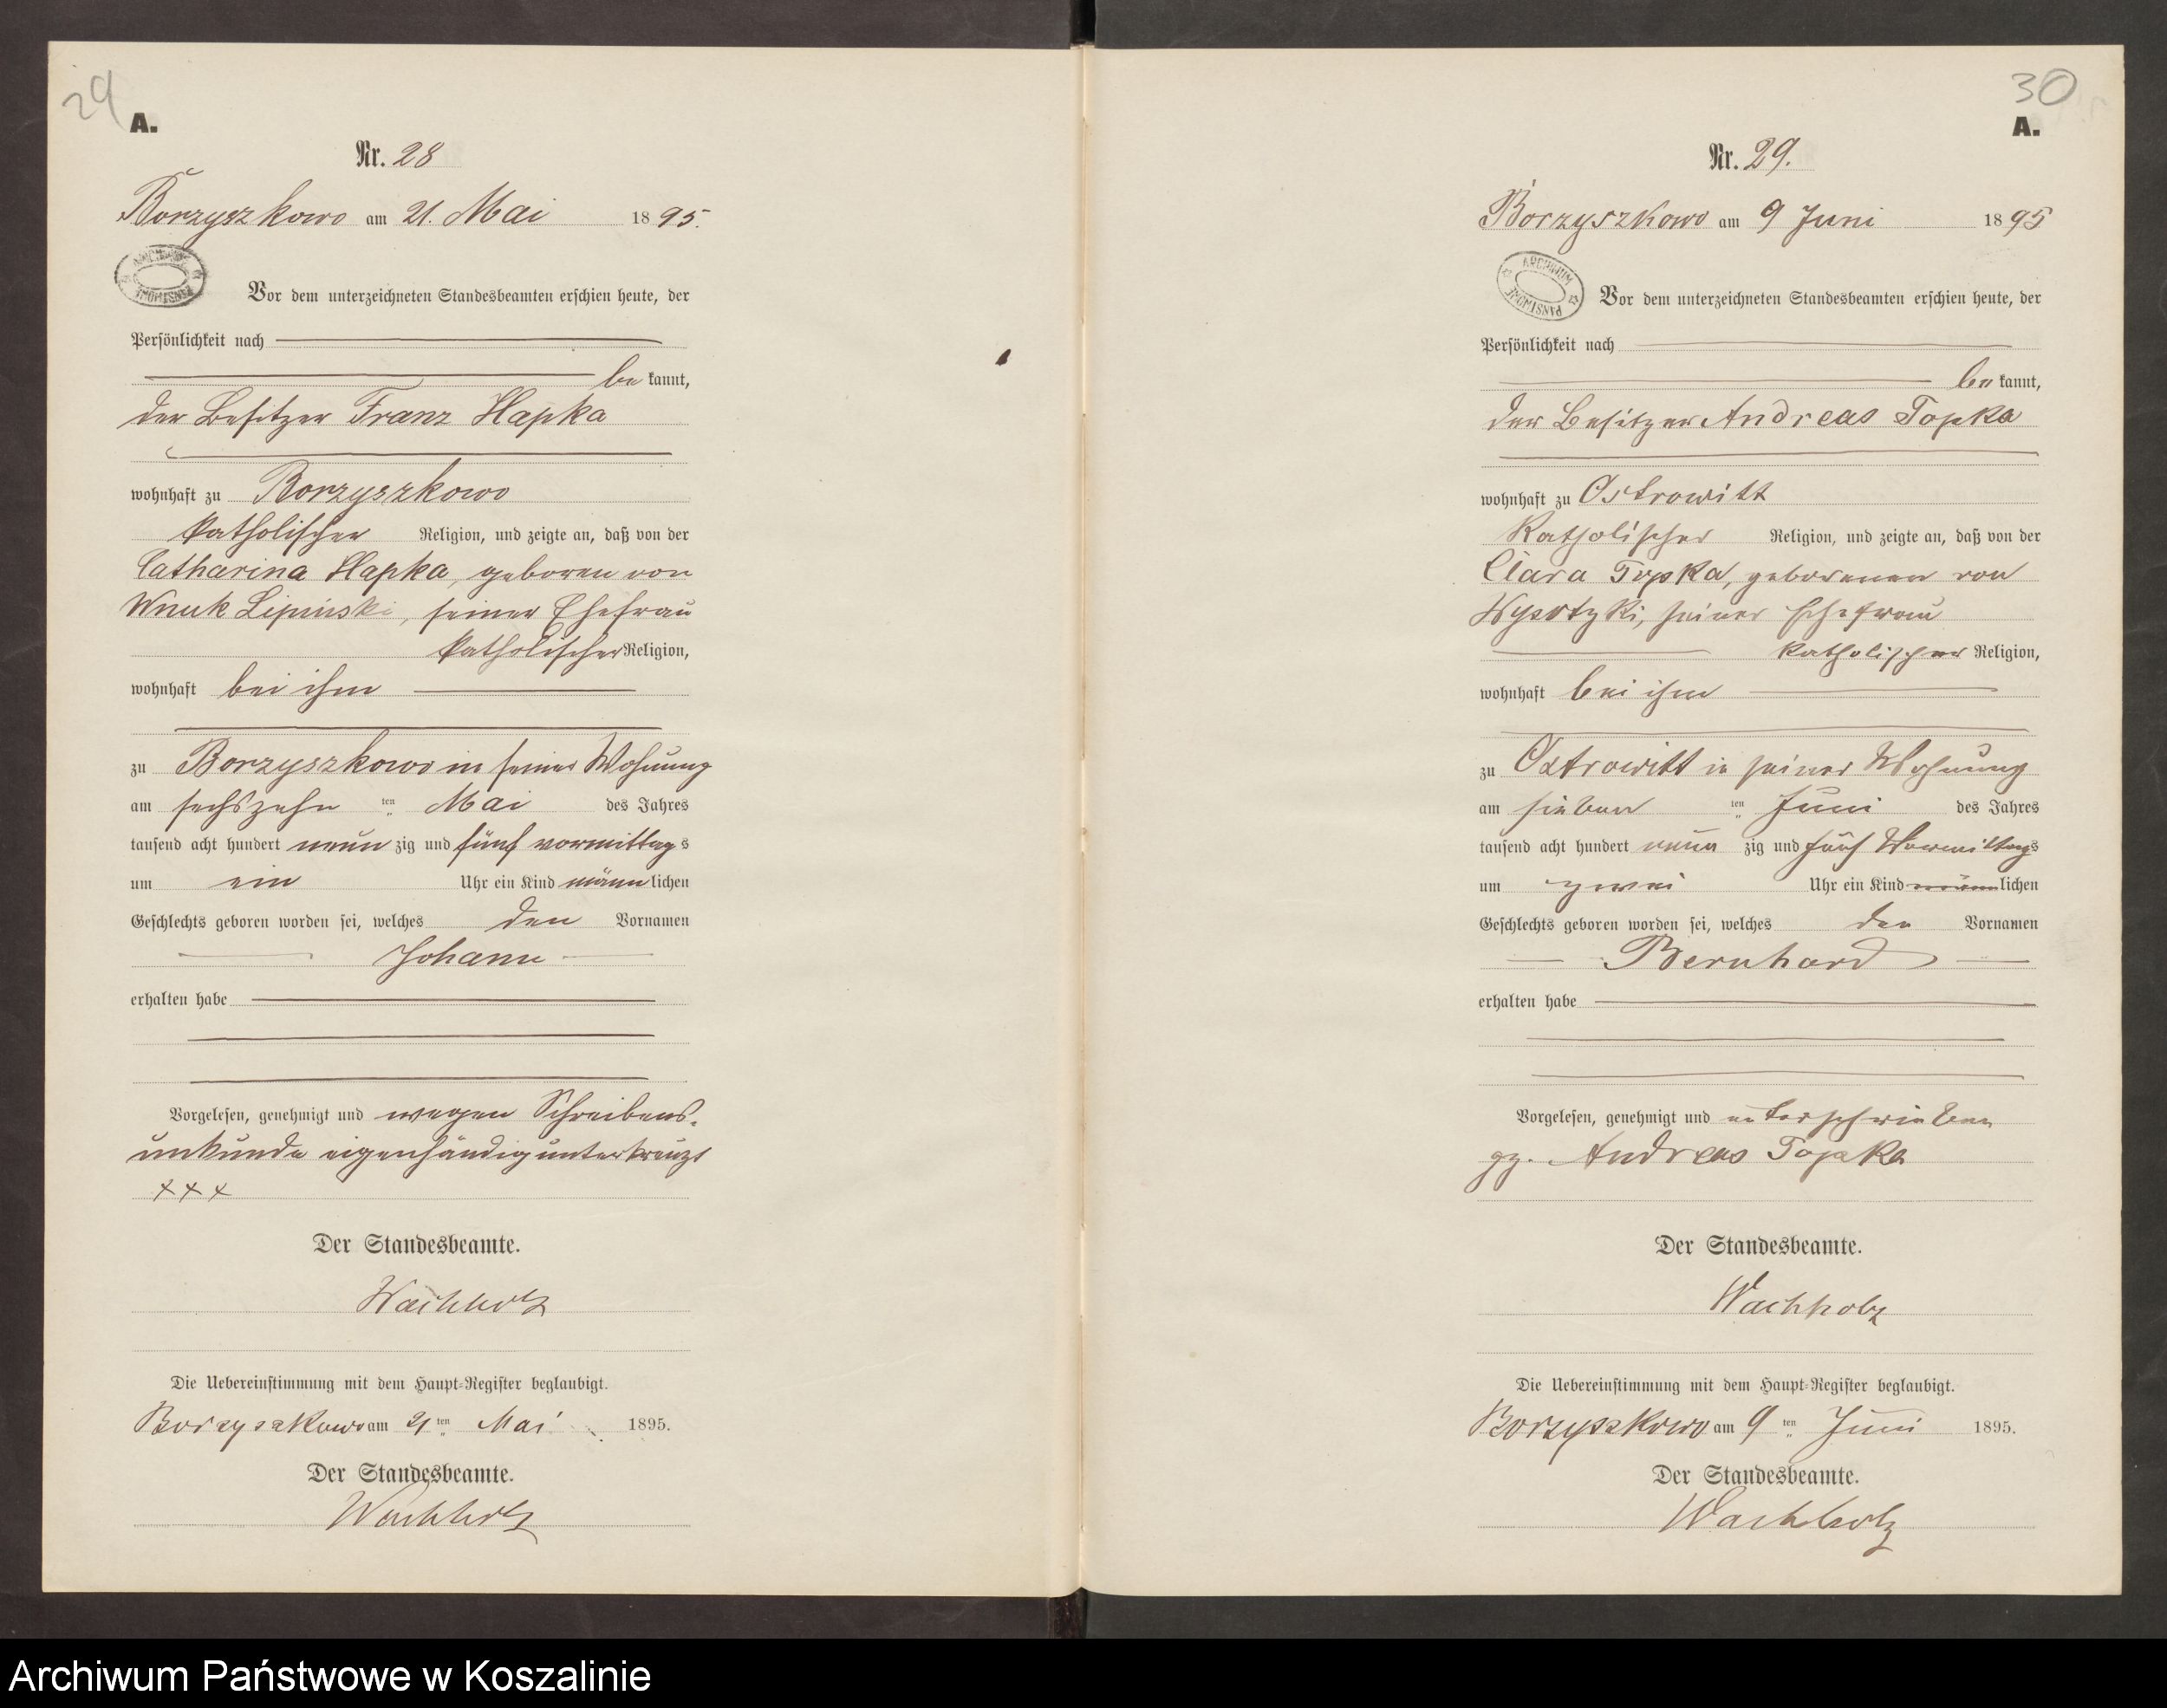 29
A.
Nr. 28
Borzyszkowo am 21. Mai 1895.
ARCHIWUM PAŃSTWOWE
Vor dem unterzeichneten Standesbeamten erschien heute, der
Persönlichkeit nach
be kannt,
der Besitzer Franz Hapka
wohnhaft zu Borzyszkowo
katholischer Religion, und zeigte an, daß von der
Catharina Hapka, geboren von
Wnuk Lipinski, seiner Ehefrau
katholischer Religion,
wohnhaft bei ihm
zu Borzyszkowo in seiner Wohnung
am sechszehn ten Mai des Jahres
tausend acht hundert neun zig und fünf vormittags
um ein Uhr ein Kind männlichen
Geschlechts geboren worden sei, welches den Vornamen
Johann
erhalten habe
Vorgelesen, genehmigt und wegen Schreibens-
unkunde eigenhändig unterkreuzt
+++
Der Standesbeamte.
Wachholz
Die Uebereinstimmung mit dem Haupt-Register beglaubigt.
Borzyszkowo am 21ten Mai 1895.
Der Standesbeamte.
Wachholz
30
A.
Nr. 29.
Borzyszkowo am 9 Juni 1895
ARCHIWUM PAŃSTWOWE
Vor dem unterzeichneten Standesbeamten erschien heute, der
Persönlichkeit nach
be kannt,
der Besitzer Andreas Topka
wohnhaft zu Ostrowitt
Katholischer Religion, und zeigte an, daß von der
Clara Topka, geborenen von
Wysotzki, seiner Ehefrau
katholischer Religion,
wohnhaft bei ihm
zu Ostrowitt in seiner Wohnung
am sieben ten Juni des Jahres
tausend acht hundert neun zig und fünf Vormittags
um zwei Uhr ein Kind männlichen
Geschlechts geboren worden sei, welches den Vornamen
Bernhard
erhalten habe
Vorgelesen, genehmigt und unterschrieben
gz. Andreas Topka
Der Standesbeamte.
Wachholz
Die Uebereinstimmung mit dem Haupt-Register beglaubigt.
Borzyszkowo am 9ten Juni 1895.
Der Standesbeamte.
Wachholz
Archiwum Państwowe w Koszalinie